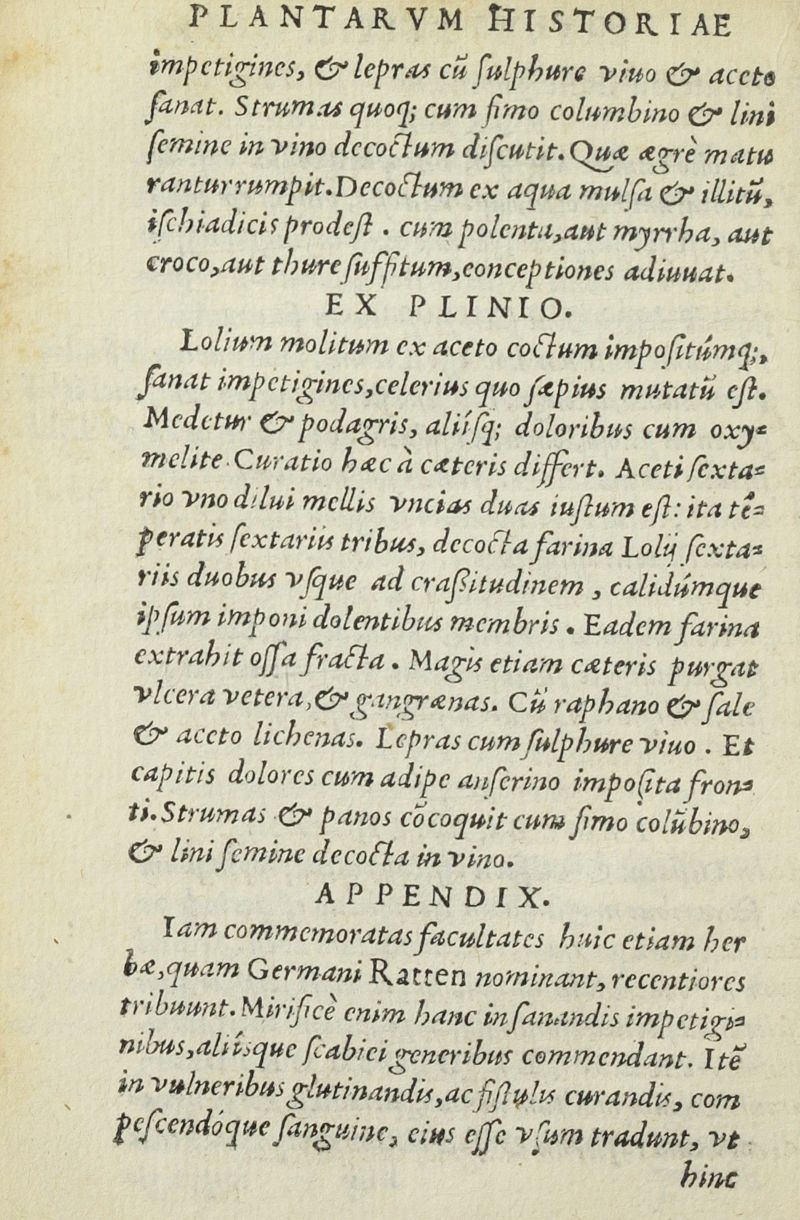 PLANTARVM HISTORIAE
impetigines, & lepras cũ ſulphure viuo & aceto
ſanat. Strumas quoq; cum fimo columbino & lini
ſemine in vino decoctum diſcutit. Quæ ægrè matu
ranturrumpit. Decoctum ex aqua mulſa & illitũ,
iſchiadicis prodeſt . cum polenta, aut myrrha, aut
croco, aut thure ſuffitum, conceptiones adiuuat.
EX PLINIO.
Lolium molitum ex aceto coctum impoſitúmq;,
ſanat impetigines, celerius quo ſæpius mutatũ eſt.
Medetur & podagris, aliíſq; doloribus cum oxy-
melite. Curatio hæc à cæteris differt. Aceti ſexta-
rio vno dilui mellis vncias duas iuſtum eſt: ita tẽ-
peratis ſextariis tribus, decocta farina Lolij ſexta-
riis duobus vſque ad craſſitudinem , calidúmque
ipſum imponi dolentibus membris . Eadem farina
extrahit oſſa fracta . Magis etiam cæteris purgat
vlcera vetera, & gangrænas. Cũ raphano & ſale
& aceto lichenas. Lepras cum ſulphure viuo . Et
capitis dolores cum adipe anſerino impoſita fron-
ti. Strumas & panos cõcoquit cum fimo colũbino,
& lini ſemine decocta in vino.
APPENDIX.
Iam commemoratas facultates huic etiam her
bæ, quam Germani Ratten nominant, recentiores
tribuunt. Mirificè enim hanc in ſanandis impetigi-
nibus, aliísque ſcabiei generibus commendant. Itẽ
in vulneribus glutinandis, ac fiſtulis curandis, com
peſcendóque ſanguine, eius eſſe vſum tradunt, vt
hinc